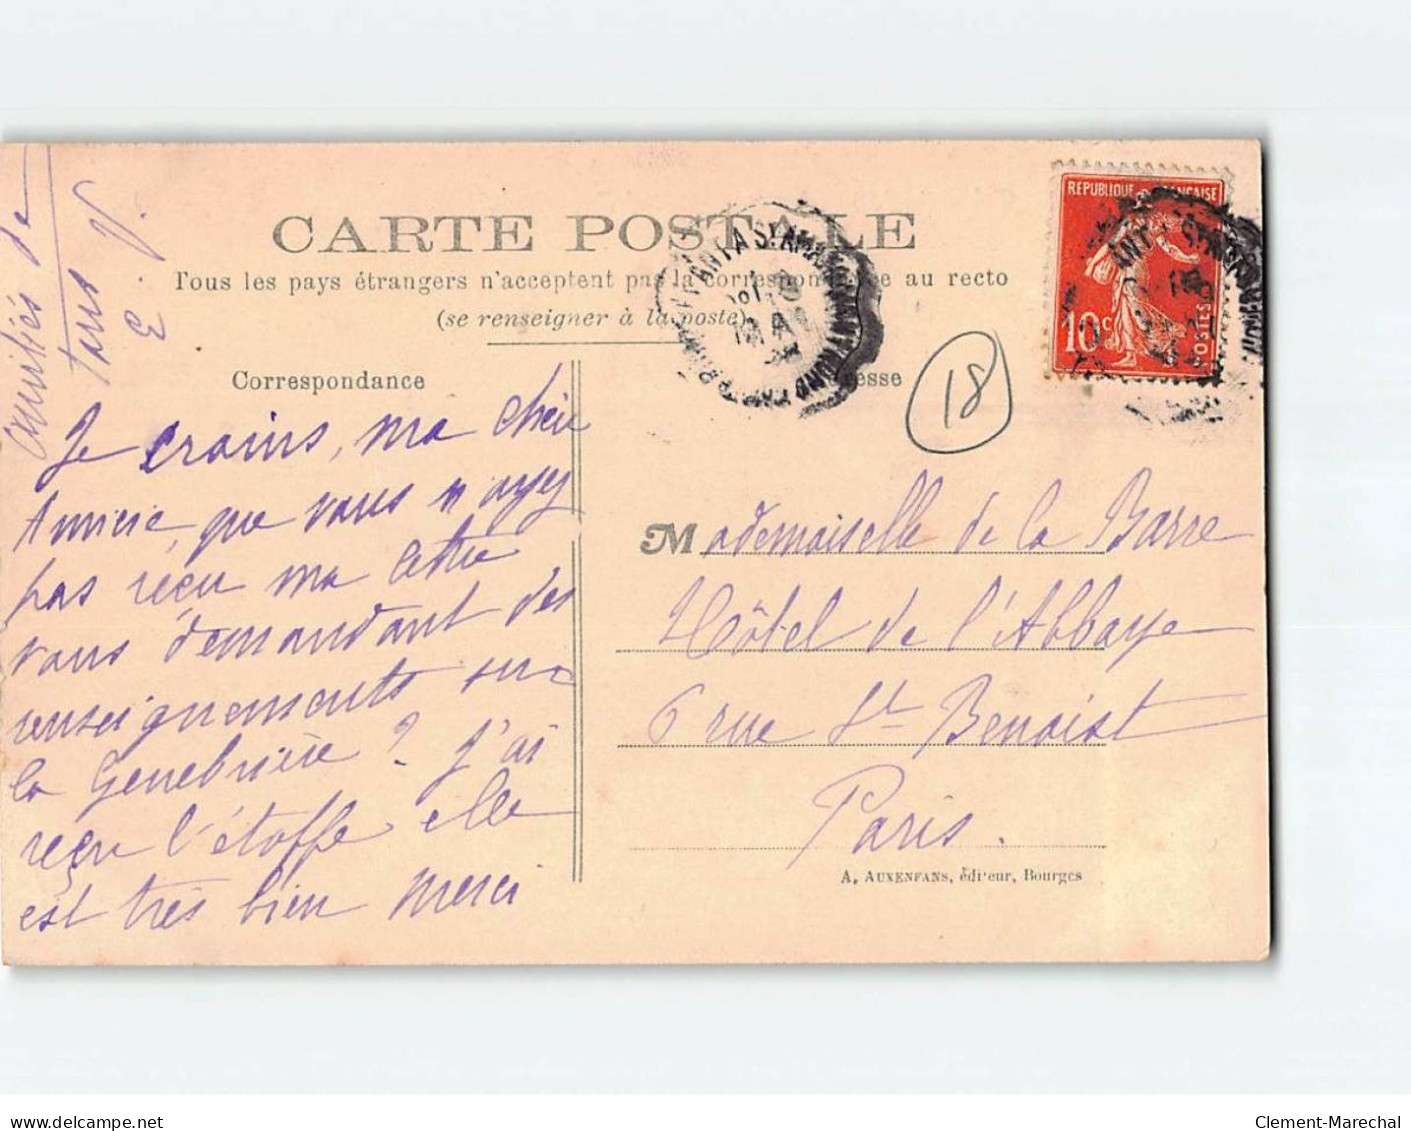 CARTE POSTALE
Tous les pays étrangers n'acceptent pas la correspondance au recto
(se renseigner à la poste)
Correspondance
Adresse
RÉPUBLIQUE FRANÇAISE
10c
POSTES
18
Amitiés de
tous
E. V.
Je crains, ma chère
Amicie, que vous n'ayez
pas reçu ma lettre
vous demandant des
renseignements sur
la Genebrière ? J'ai
reçu l'étoffe elle
est très bien merci
Mademoiselle de la Barre
Hôtel de l'Abbaye
6 rue St Benoist
Paris.
A. AUXENFANS, éditeur, Bourges
www.delcampe.net
Clement-Marechal